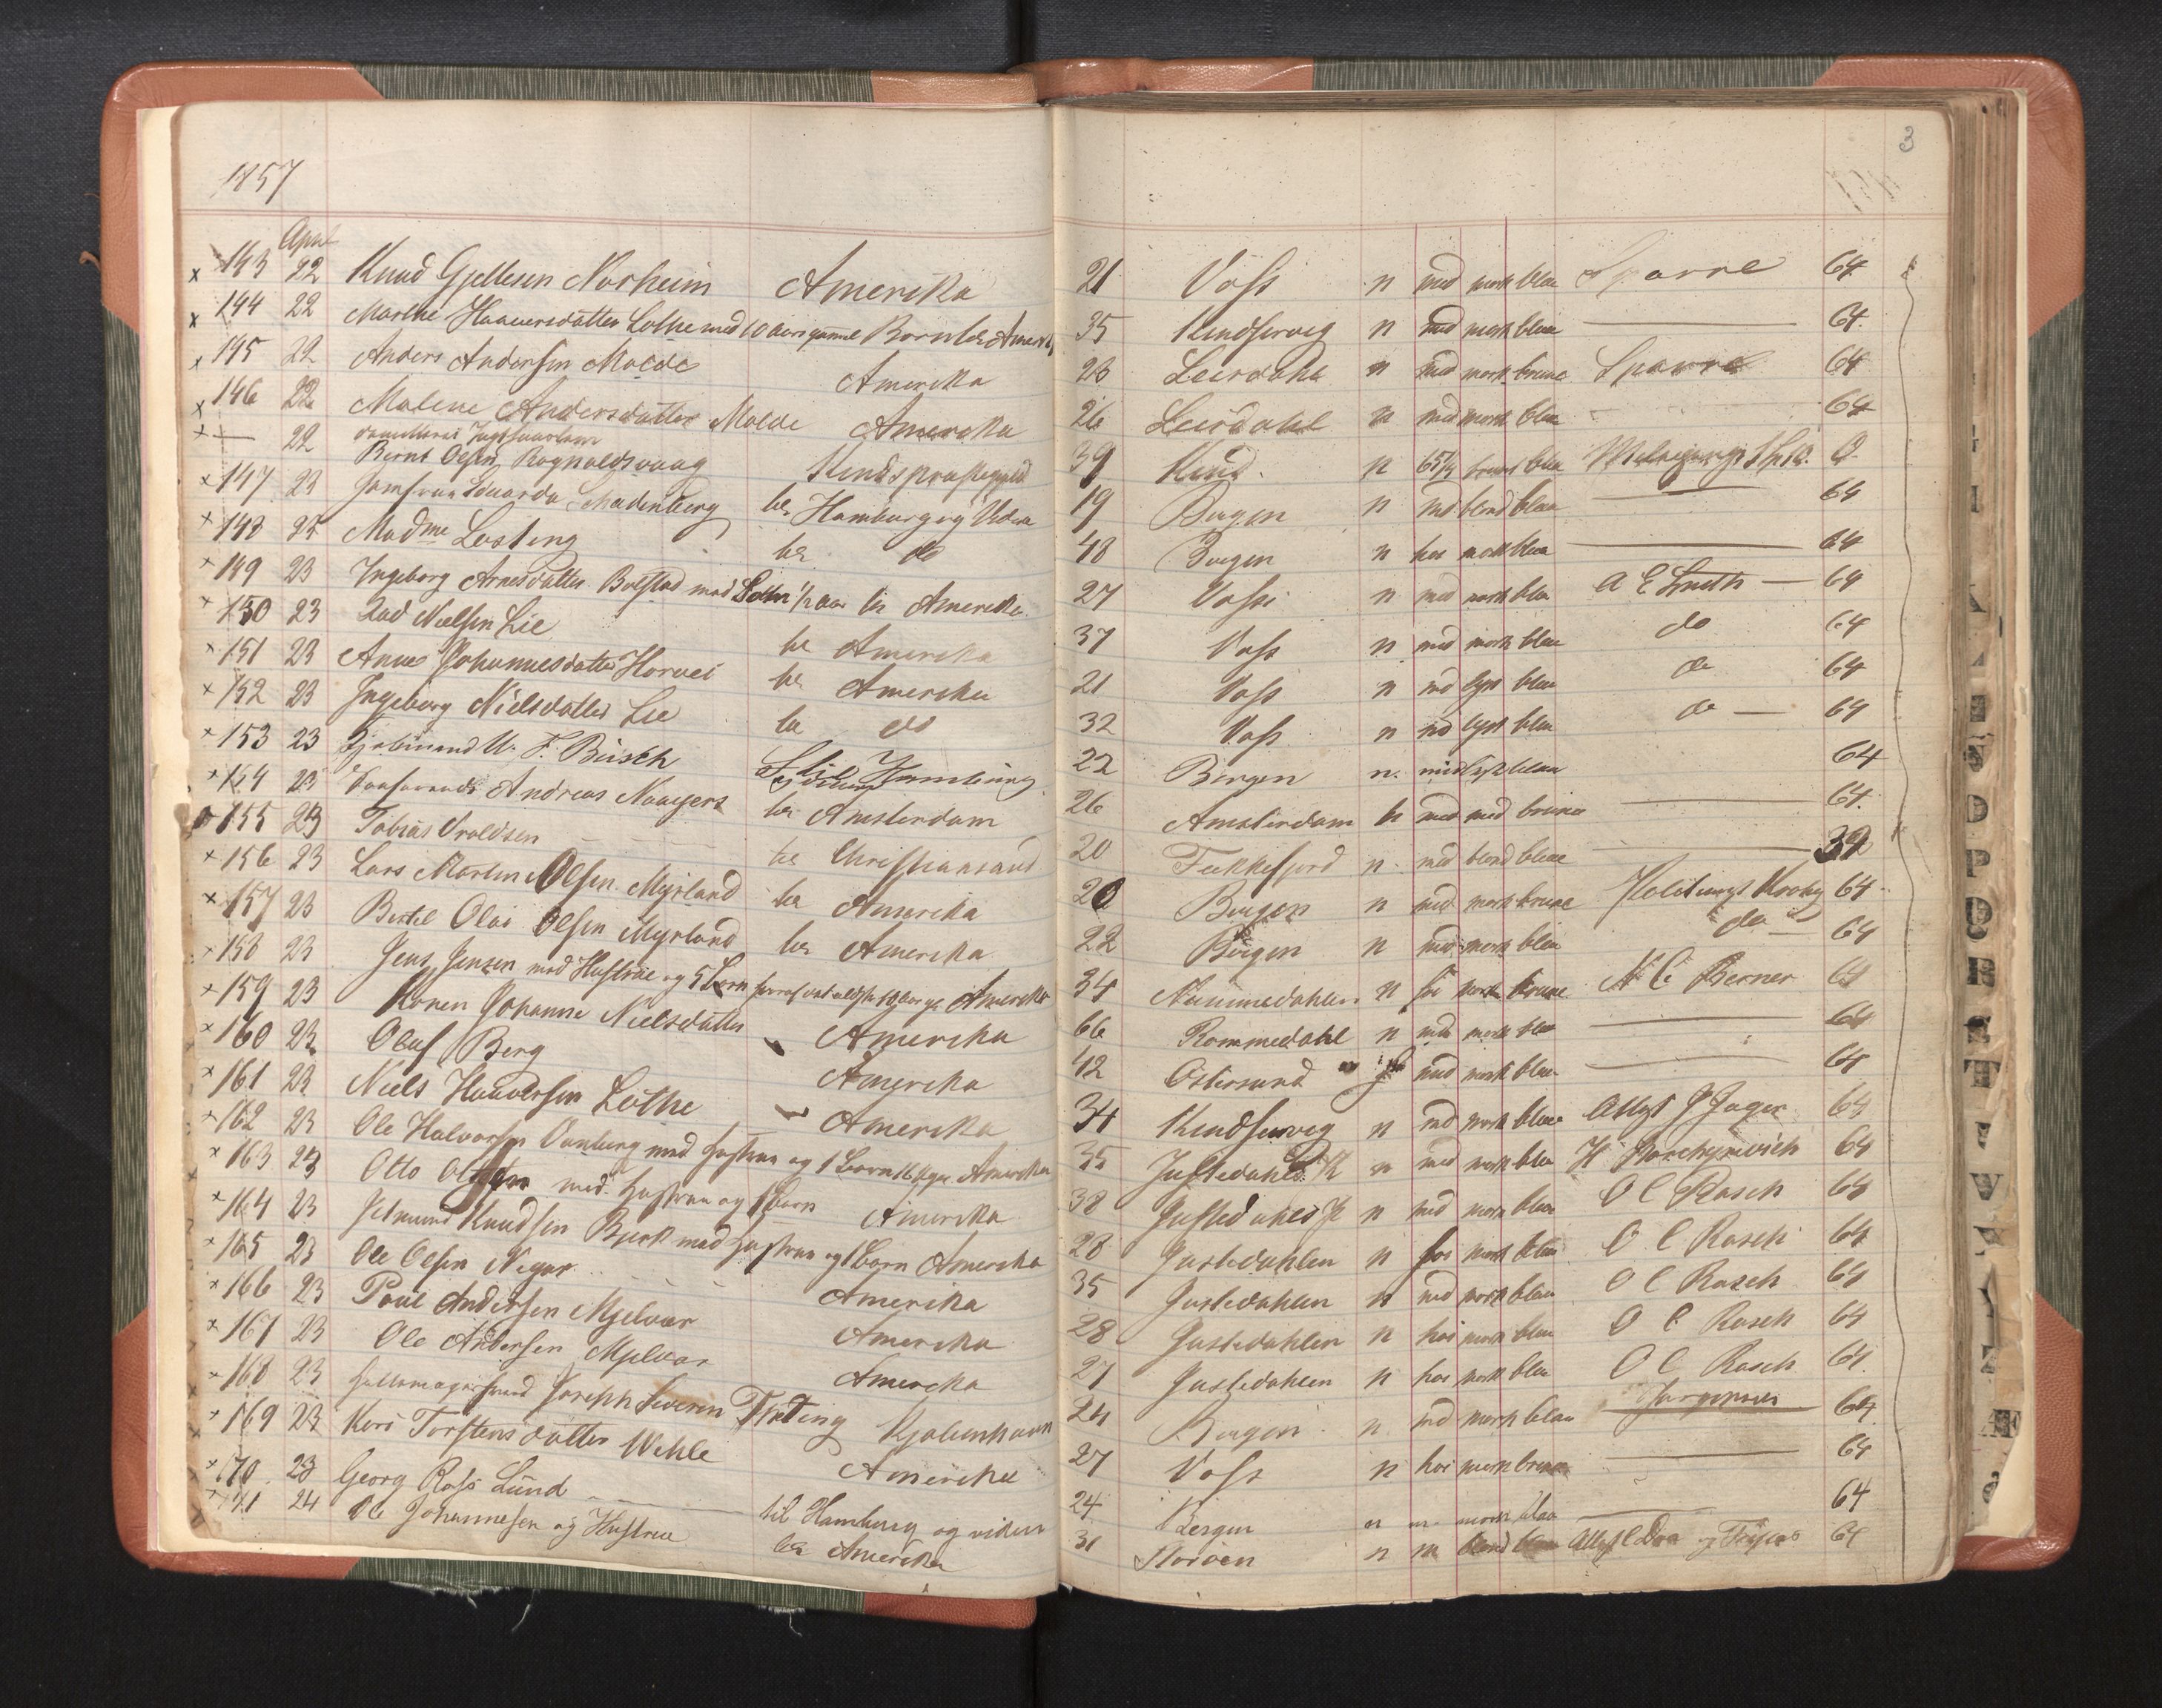 1857
3
April
143 22 Knud Gjellesen Norheim Amerika 21 Voss n mid mork blaa Sparre 64
144 22 Marthe Haaversdatter Lothe med 10 aars gammel Barn til Amerika 35 Kindservig n mid mork blaa 64
145 22 Anders Andersen Molde Amerika 23 Leirdahl n mid mork brune Sparre 64
146 22 Malene Andersdatter Molde Amerika 26 Leirdahl n mid mork blaa 64
22 Bernt Olsen Rognaldsvaag Kinds præstegjeld 39 Kind n 65 1/2 brunt blaa 0
147 23 Jomfrue Eduarda Schadenberg til Hamburg og Videre 19 Bergen n md blond blaa 64
148 23 Madme Losting til do 48 Bergen n hoi mork blaa 64
149 23 Ingeborg Arnesdatter Bolstad med Datter 1/2 aar til Amerika 27 Voss n mid mork blaa A E Smith 64
150 23 Lad Nielsen Lie til Amerika 37 Voss n mid mork blaa do 64
151 23 Anna Johannesdatter Horvei til Amerika 21 Voss n md lyst blaa do 64
152 23 Ingeborg Nielsdatter Lie til do 32 Voss n md lyst blaa do 64
153 23 Kjøbmand W. F. Büsch til Hamburg 22 Bergen n. mid lyst blaa 64
154 23 Andreas Naagers til Amsterdam 26 Amsterdam h mid mid brune 64
155 23 Tobias Oroldsen til Christiansand 20 Fekkefjord n mid blond blaa 39
156 23 Lars Martin Olsen Myrland til Amerika 20 Bergen n mid mork brune Politimest Krohg 64
157 23 Bertil Olai Olsen Myrland til Amerika 22 Bergen n mid mork blaa do 64
158 23 Jens Jensen med Hustrue og 5 Born hvoraf det ældste 10 Aar gl Amerika 34 Nummedahlen n hoi mork brune N C Berner 64
159 23 Konen Johanne Nielsdatter Amerika 66 Rommedahl n mid mork blaa 64
160 23 Oluf Berg Amerika 42 Ostersund mid mork blaa 64
161 23 Niels Haaversen Lothe Amerika 34 Kindservig n md mork blaa Attest J Jager 64
162 23 Ole Halvorsen med Hustrue og 1 Barn 16 Aar Amerika 35 Justedahls n mid mork blaa H 64
163 23 Otto Olsen med Hustrue og 1 Barn Amerika 38 Justedahls n mid mork blaa O C Rasch 64
164 23 Jetmund Knudsen Bjerk med Hustrue og 1 Barn Amerika 28 Justedahlen n hoi mork blaa O C Rasch 64
165 23 Ole Olsen Nigar Amerika 35 Justedahlen n md mork blaa O C Rasch 64
166 23 Poul Andersen Mjelvær Amerika 28 Justedahlen n hoi mork blaa O C Rasch 64
167 23 Ole Andersen Mjelvær Amerika 27 Justedahlen n hoi mork blaa O C Rasch 64
168 23 Joseph Severin Kjøbenhavn 24 Bergen n md mork blaa 64
169 23 Kari Torstensdatter Wehle Amerika 27 Voss n hoi mork brune 64
170 23 Georg Rass Lund til Hamburg og videre 24 Bergen n m. mork blaa 64
171 24 Ole Johannesen og Hustrue til Amerika 31 Storoen n m blond blaa 64